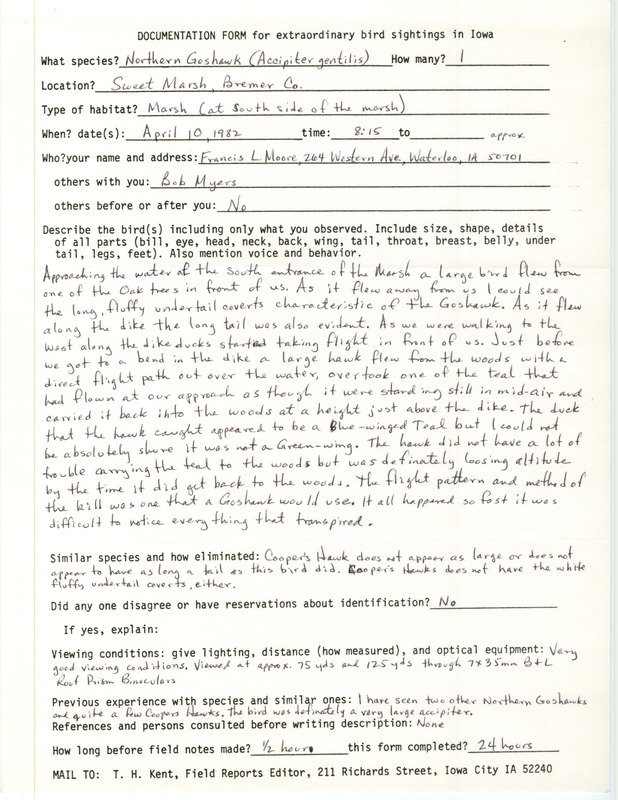 DOCUMENTATION FORM for extraordinary bird sightings in Iowa
What species? Northern Goshawk (Accipiter gentilis) How many? 1
Location? Sweet Marsh, Bremer Co.
Type of habitat? Marsh (at South side of the marsh)
When? date(s): April 10, 1982 time: 8:15 to approx.
Who?your name and address: Francis L. Moore, 264 Western Ave., Waterloo, IA 50701
others with you: Bob Myers
others before or after you: No
Describe the bird(s) including only what you observed. Include size, shape, details
of all parts (bill, eye, head, neck, back, wing, tail, throat, breast, belly, under
tail, legs, feet). Also mention voice and behavior.
Approaching the water at the South entrance of the Marsh a large bird flew from
one of the Oak trees in front of us. As it flew away from us I could see
the long, fluffy undertail coverts characteristic of the Goshawk. As it flew
along the dike the long tail was also evident. As we were walking to the
West along the dike ducks started taking flight in front of us. Just before
we got to a bend in the dike a large hawk flew from the woods with a
direct flight path out over the water, overtook one of the teal that
had flown at our approach as though it were standing still in mid-air and
carried it back into the woods at a height just above the dike. The duck
that the hawk caught appeared to be a Blue-winged Teal but I could not
be absolutely shure it was not a Green-wing. The hawk did not have a lot of
trouble carrying the teal to the woods but was definately loosing altitude
by the time it did get back to the woods. The flight pattern and method of
the kill was one that a Goshawk would use. It all happened so fast it was
difficult to notice everything that transpired.
Similar species and how eliminated: Cooper's Hawk does not appear as large or does not
appear to have as long a tail as this bird did. Cooper's Hawks does not have the white
fluffy undertail coverts, either.
Did any one disagree or have reservations about identification? No
If yes, explain:
Viewing conditions: give lighting, distance (how measured), and optical equipment: Very
good viewing conditions. Viewed at approx. 75 yds and 125 yds through 7x35mm B+L
Roof Prism Binoculars
Previous experience with species and similar ones: I have seen two other Northern Goshawks
and quite a few Coopers Hawks. The bird was definately a very large accipiter.
References and persons consulted before writing description: None
How long before field notes made? 1/2 hour this form completed? 24 hours
MAIL TO: T. H. Kent, Field Reports Editor, 211 Richards Street, Iowa City IA 52240